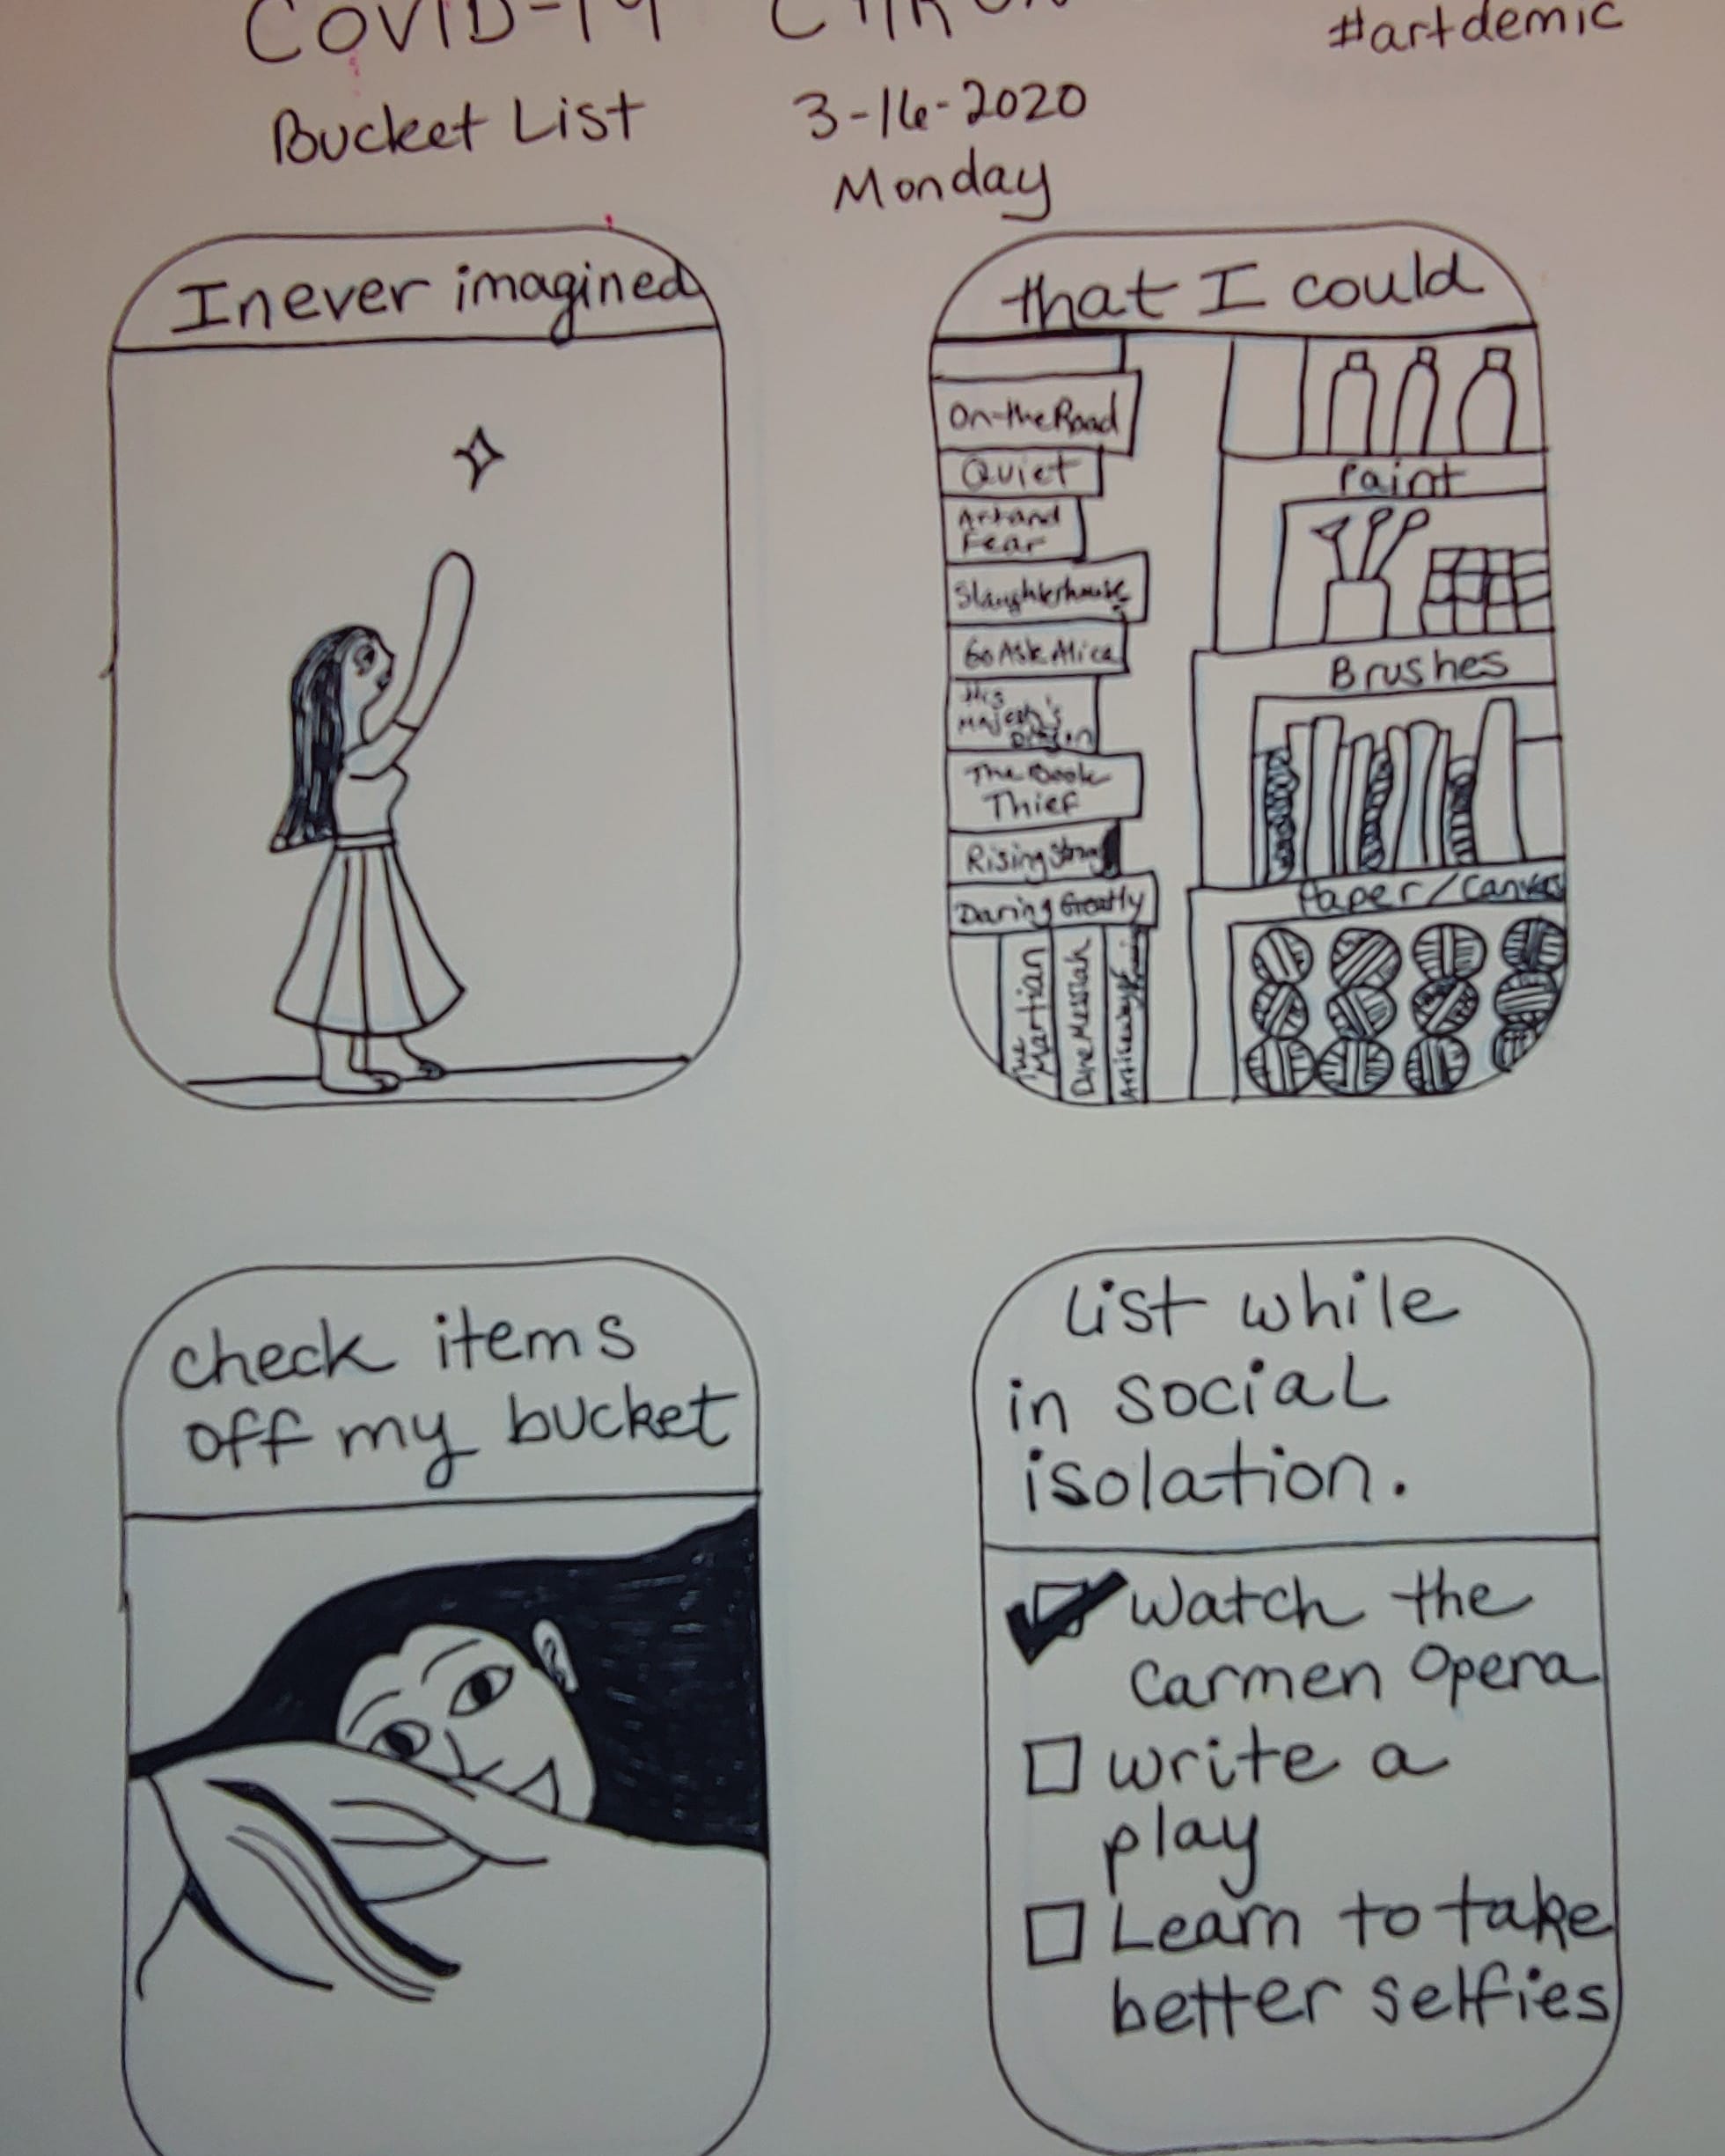 COVID-19
#artdemic
Bucket List
3-16-2020
Monday
I never imagined
that I could
On the Road
Quiet
Art and
Fear
Slaughterhouse
Go Ask Alice
His
Majesty's
Dragon
The Book
Thief
Rising Strong
Daring Greatly
The Martian
Dune Messiah
Paint
Brushes
Paper/Canvas
check items
off my bucket
List while
in social
isolation.
Watch the
Carmen Opera
write a
play
Learn to take
better selfies